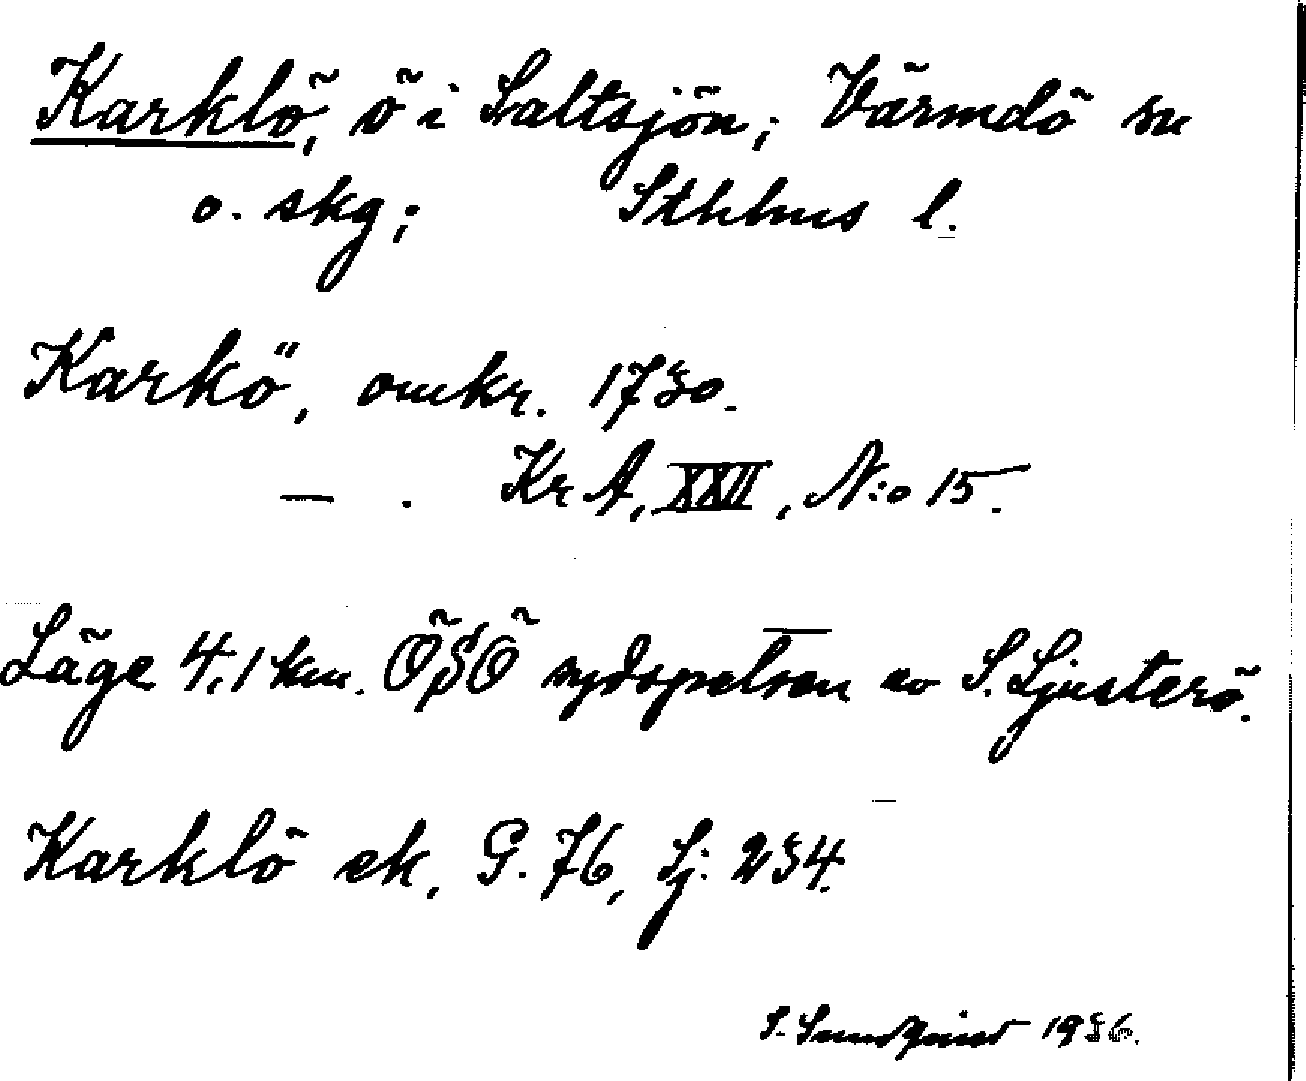 Karklö, ö i Saltsjön; Värmdö sn
o. skg; Sthlms l.
Karkö, omkr. 1730.
— . Kr A, XXII, N:o 15.
Läge 4,1 km. ÖSÖ sydspetsen av S. Ljusterö.
Karklö ek. G. 76, Sj: 234.
S. Sundqvist 1936.